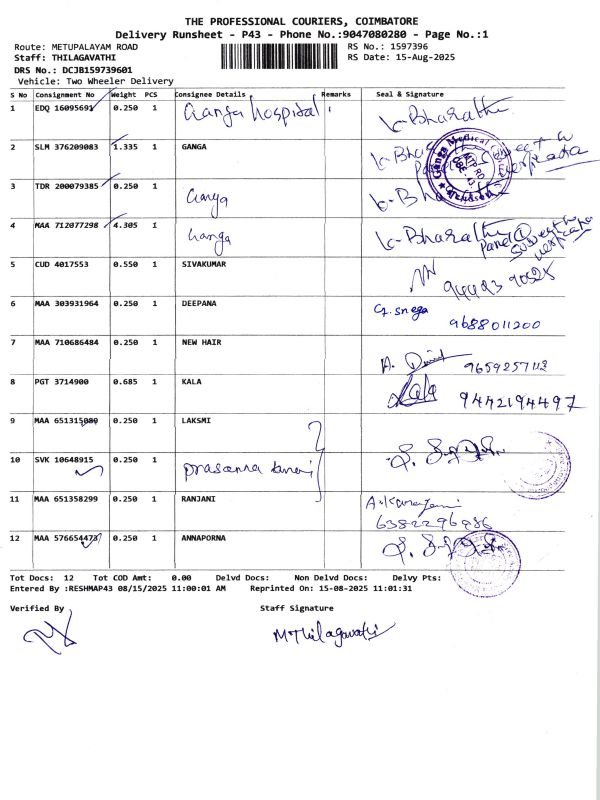 THE PROFESSIONAL COURIERS, COIMBATORE
Delivery Runsheet - P43 - Phone No.:9047080280 - Page No.:1
Route: METUPALAYAM ROAD RS No.: 1597396
Staff: THILAGAVATHI RS Date: 15-Aug-2025
DRS No.: DCJB159739601
Vehicle: Two Wheeler Delivery
S No Consignment No Weight PCS Consignee Details Remarks Seal & Signature
1 EDQ 16095691 0.250 1 Ganga hospital K-Bharathi
2 SLM 376209083 1.335 1 GANGA
3 TDR 200079385 0.250 1 Ganga
4 MAA 712077298 4.305 1 Ganga K-Bharathi
5 CUD 4017553 0.550 1 SIVAKUMAR
6 MAA 303931964 0.250 1 DEEPANA G. snega
9688011200
7 MAA 710686484 0.250 1 NEW HAIR 9659257112
8 PGT 3714900 0.685 1 KALA Kala 9442194497
9 MAA 651315080 0.250 1 LAKSMI
10 SVK 10648915 0.250 1 prasanna
11 MAA 651358299 0.250 1 RANJANI
6382296986
12 MAA 576654473 0.250 1 ANNAPORNA
Tot Docs: 12 Tot COD Amt: 0.00 Delvd Docs: Non Delvd Docs: Delvy Pts:
Entered By :RESHMAP43 08/15/2025 11:00:01 AM Reprinted On: 15-08-2025 11:01:31
Verified By Staff Signature
M Thilagavathi